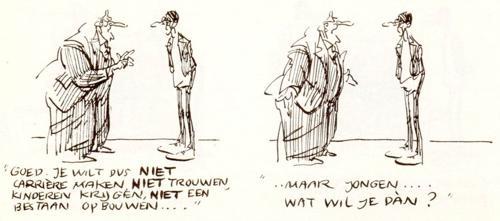 "GOED. JE WILT DUS NIET
CARRIÈRE MAKEN NIET TROUWEN
KINDEREN KRIJGEN, NIET EEN
BESTAAN OPBOUWEN...."
"..MAAR JONGEN....
WAT WIL JE DAN?"